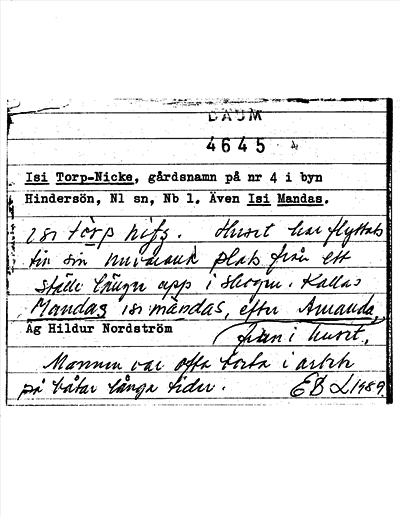 DAUM
4645
Isi Torp-Nicke, gårdsnamn på nr 4 i byn
Hindersön, Nl sn, Nb l. Även Isi Mandas.
isi tɷrp nifʒ. Huset har flyttats
till sin nuvarande plats från ett
ställe längre upp i skogen. Kallas
Mandas isi mandas, efter Amanda,
Ag Hildur Nordström
frun i huset.
Mannen var ofta borta i arbete
på båtar långa tider. EBL 1989